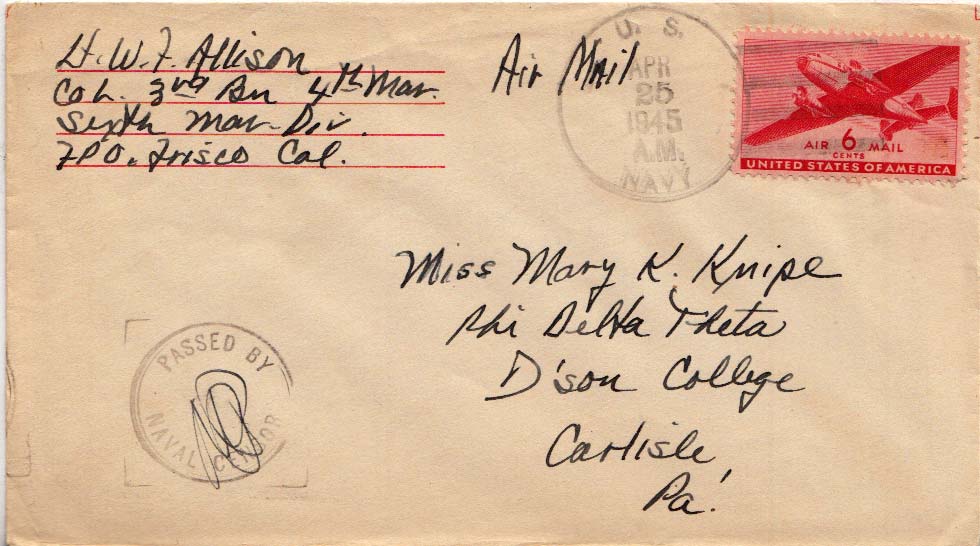 Lt. W. F. Allison
Co L. 3rd Bn 4th Mar.
Sixth Mar-Div.
FPO. Frisco Cal.
Air Mail
U. S.
APR
25
1945
A.M.
NAVY
AIR 6 MAIL
CENTS
UNITED STATES OF AMERICA
Miss Mary K. Knipe
Phi Delta Theta
D'son College
Carlisle
Pa.
PASSED BY
NAVAL CENSOR